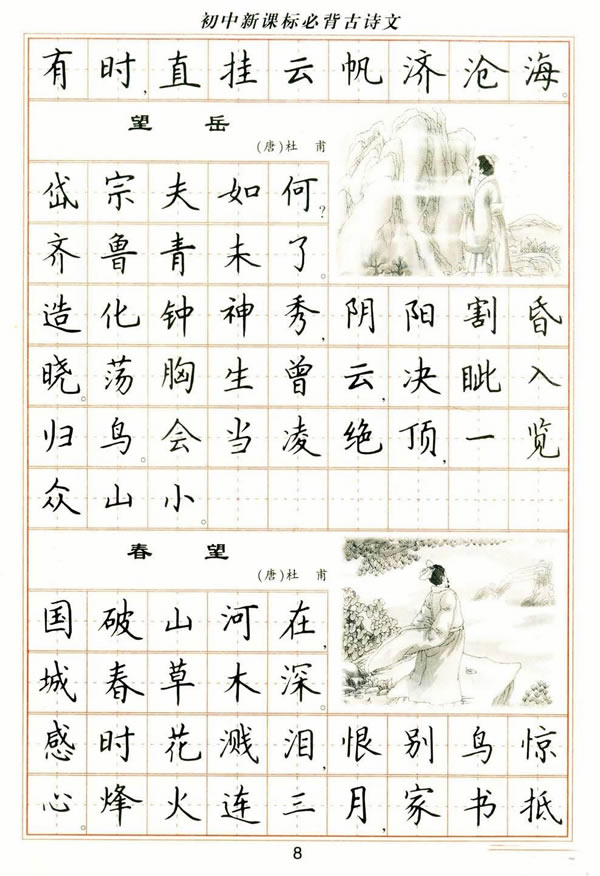 初中新课标必背古诗文
有时，直挂云帆济沧海。
望岳
(唐)杜甫
岱宗夫如何？
齐鲁青未了。
造化钟神秀，阴阳割昏
晓。荡胸生曾云，决眦入
归鸟。会当凌绝顶，一览
众山小。
春望
(唐)杜甫
国破山河在，
城春草木深。
感时花溅泪，恨别鸟惊
心。烽火连三月，家书抵
8